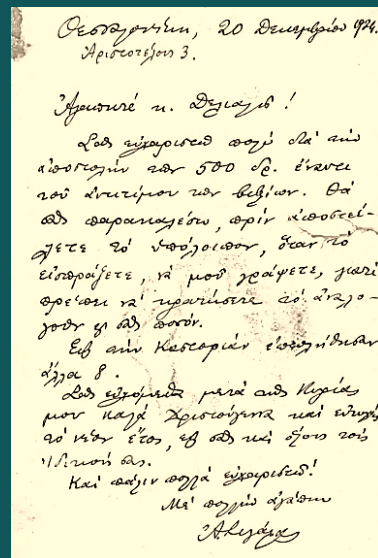 Θεσσαλονίκη, 20 Δεκεμβρίου 1974.
Αριστοτέλους 3.
Ἀγαπητέ κ. Δελιαλή!
Σᾶς εὐχαριστῶ πολύ διά τήν
ἀποστολήν τῶν 500 δρ. ἔναντι
τοῦ ἀντιτίμου τῶν βιβλίων. Θά
σᾶς παρακαλέσω, πρίν ἀποστεί-
λετε τό ὑπόλοιπον, ὅταν τό
εἰσπράξετε, νά μοῦ γράψετε, γιατί
πρέπει νά κρατήσετε τό ἀναλο-
γοῦν σᾶς ποσόν.
Εἰς τήν Καστοριάν ἐπωλήθησαν
ἄλλα 8.
Σᾶς εὐχόμεθα μετά τῆς Κυρίας
μου καλά Χριστούγεννα καί εὐτυχές
τό νέον ἔτος, εἰς σᾶς καί ὅλους τούς
ἰδικούς σας.
Καί πάλιν πολλά εὐχαριστῶ!
Μέ πολλήν ἀγάπην